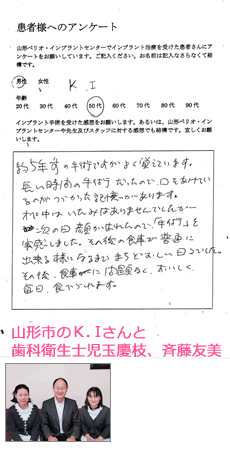 患者様へのアンケート
山形ペリオ・インプラントセンターでインプラント治療を受けた患者さんにア
ンケートをお願いしています。ご記入ください。お名前は記入なさらなくて結
構です。
男性 女性 K.I
年齢
20代 30代 40代 50代 60代 70代 80代 90代
インプラント手術を受けた感想をお願いします。あるいは、山形ペリオ・イン
プラントセンターや先生及びスタッフに対する感想でも結構です。宜しくお願
いします。
約5年前の手術ですがよく覚えています。
長い時間の手術だったので、口をあけてい
るのがつらかった記憶があります。
オペ中はいたみはありませんでしたが
次の日顔がはれたので、「手術」を
実感しました。その後の食事が普通に
出来る様になるまでまちどおしい日々でした。
その後、食事には問題なく、おいしく
毎日、食べられます。
山形市のK.Iさんと
歯科衛生士児玉慶枝、斉藤友美